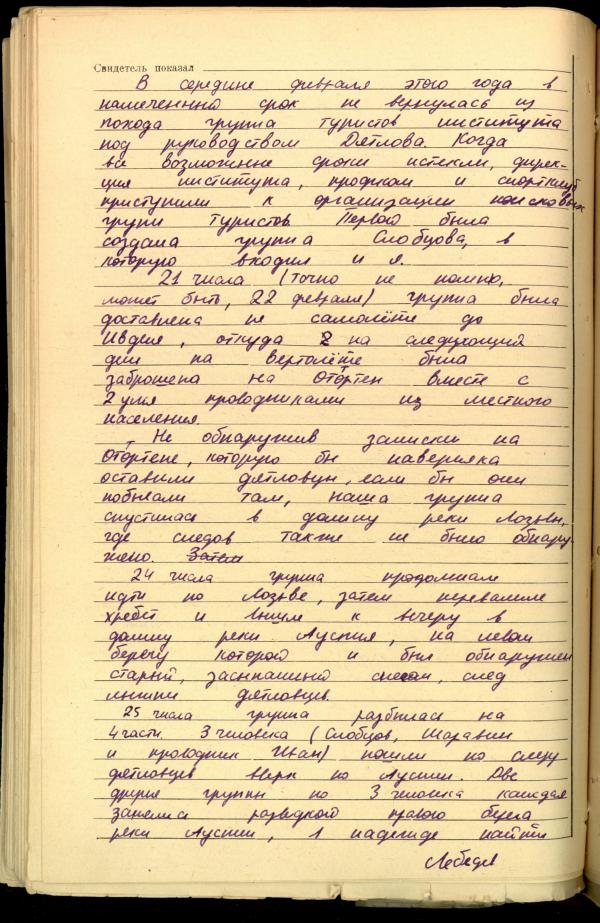 Свидетель показал
В середине февраля этого года в
намеченный срок не вернулась из
похода группа туристов института
под руководством Дятлова. Когда
все возможные сроки истекли, дирек-
ция института, профком и спортклуб
приступили к организации поисковых
групп туристов. Первой была
создана группа Слобцова, в
которую входил и я.
21 числа (точно не помню,
может быть, 22 февраля) группа была
доставлена на самолёте до
Ивделя, откуда на следующий
день на вертолёте была
заброшена на Отортен вместе с
2 умя проводниками из местного
населения.
Не обнаружив записки на
Отортене, которую бы наверняка
оставили дятловцы, если бы они
побывали там, наша группа
спустилась в долину реки Лозьвы,
где следов также не было обнару
жено. Затем
24 числа группа продолжала
идти по Лозьве, затем перевалила
хребет и вышла к вечеру в
долину реки Ауспия, на левом
берегу которой и был обнаружен
старый, засыпанный снегом, след
лыжни дятловцев.
25 числа группа разбилась на
4 части. 3 человека (Слобцов, Шаравин
и проводник Иван) пошли по следу
дятловцев вверх по Ауспии. Две
другие группы по 3 человека каждая
занялись разведкой правого берега
реки Ауспии, в надежде найти
Лебедев